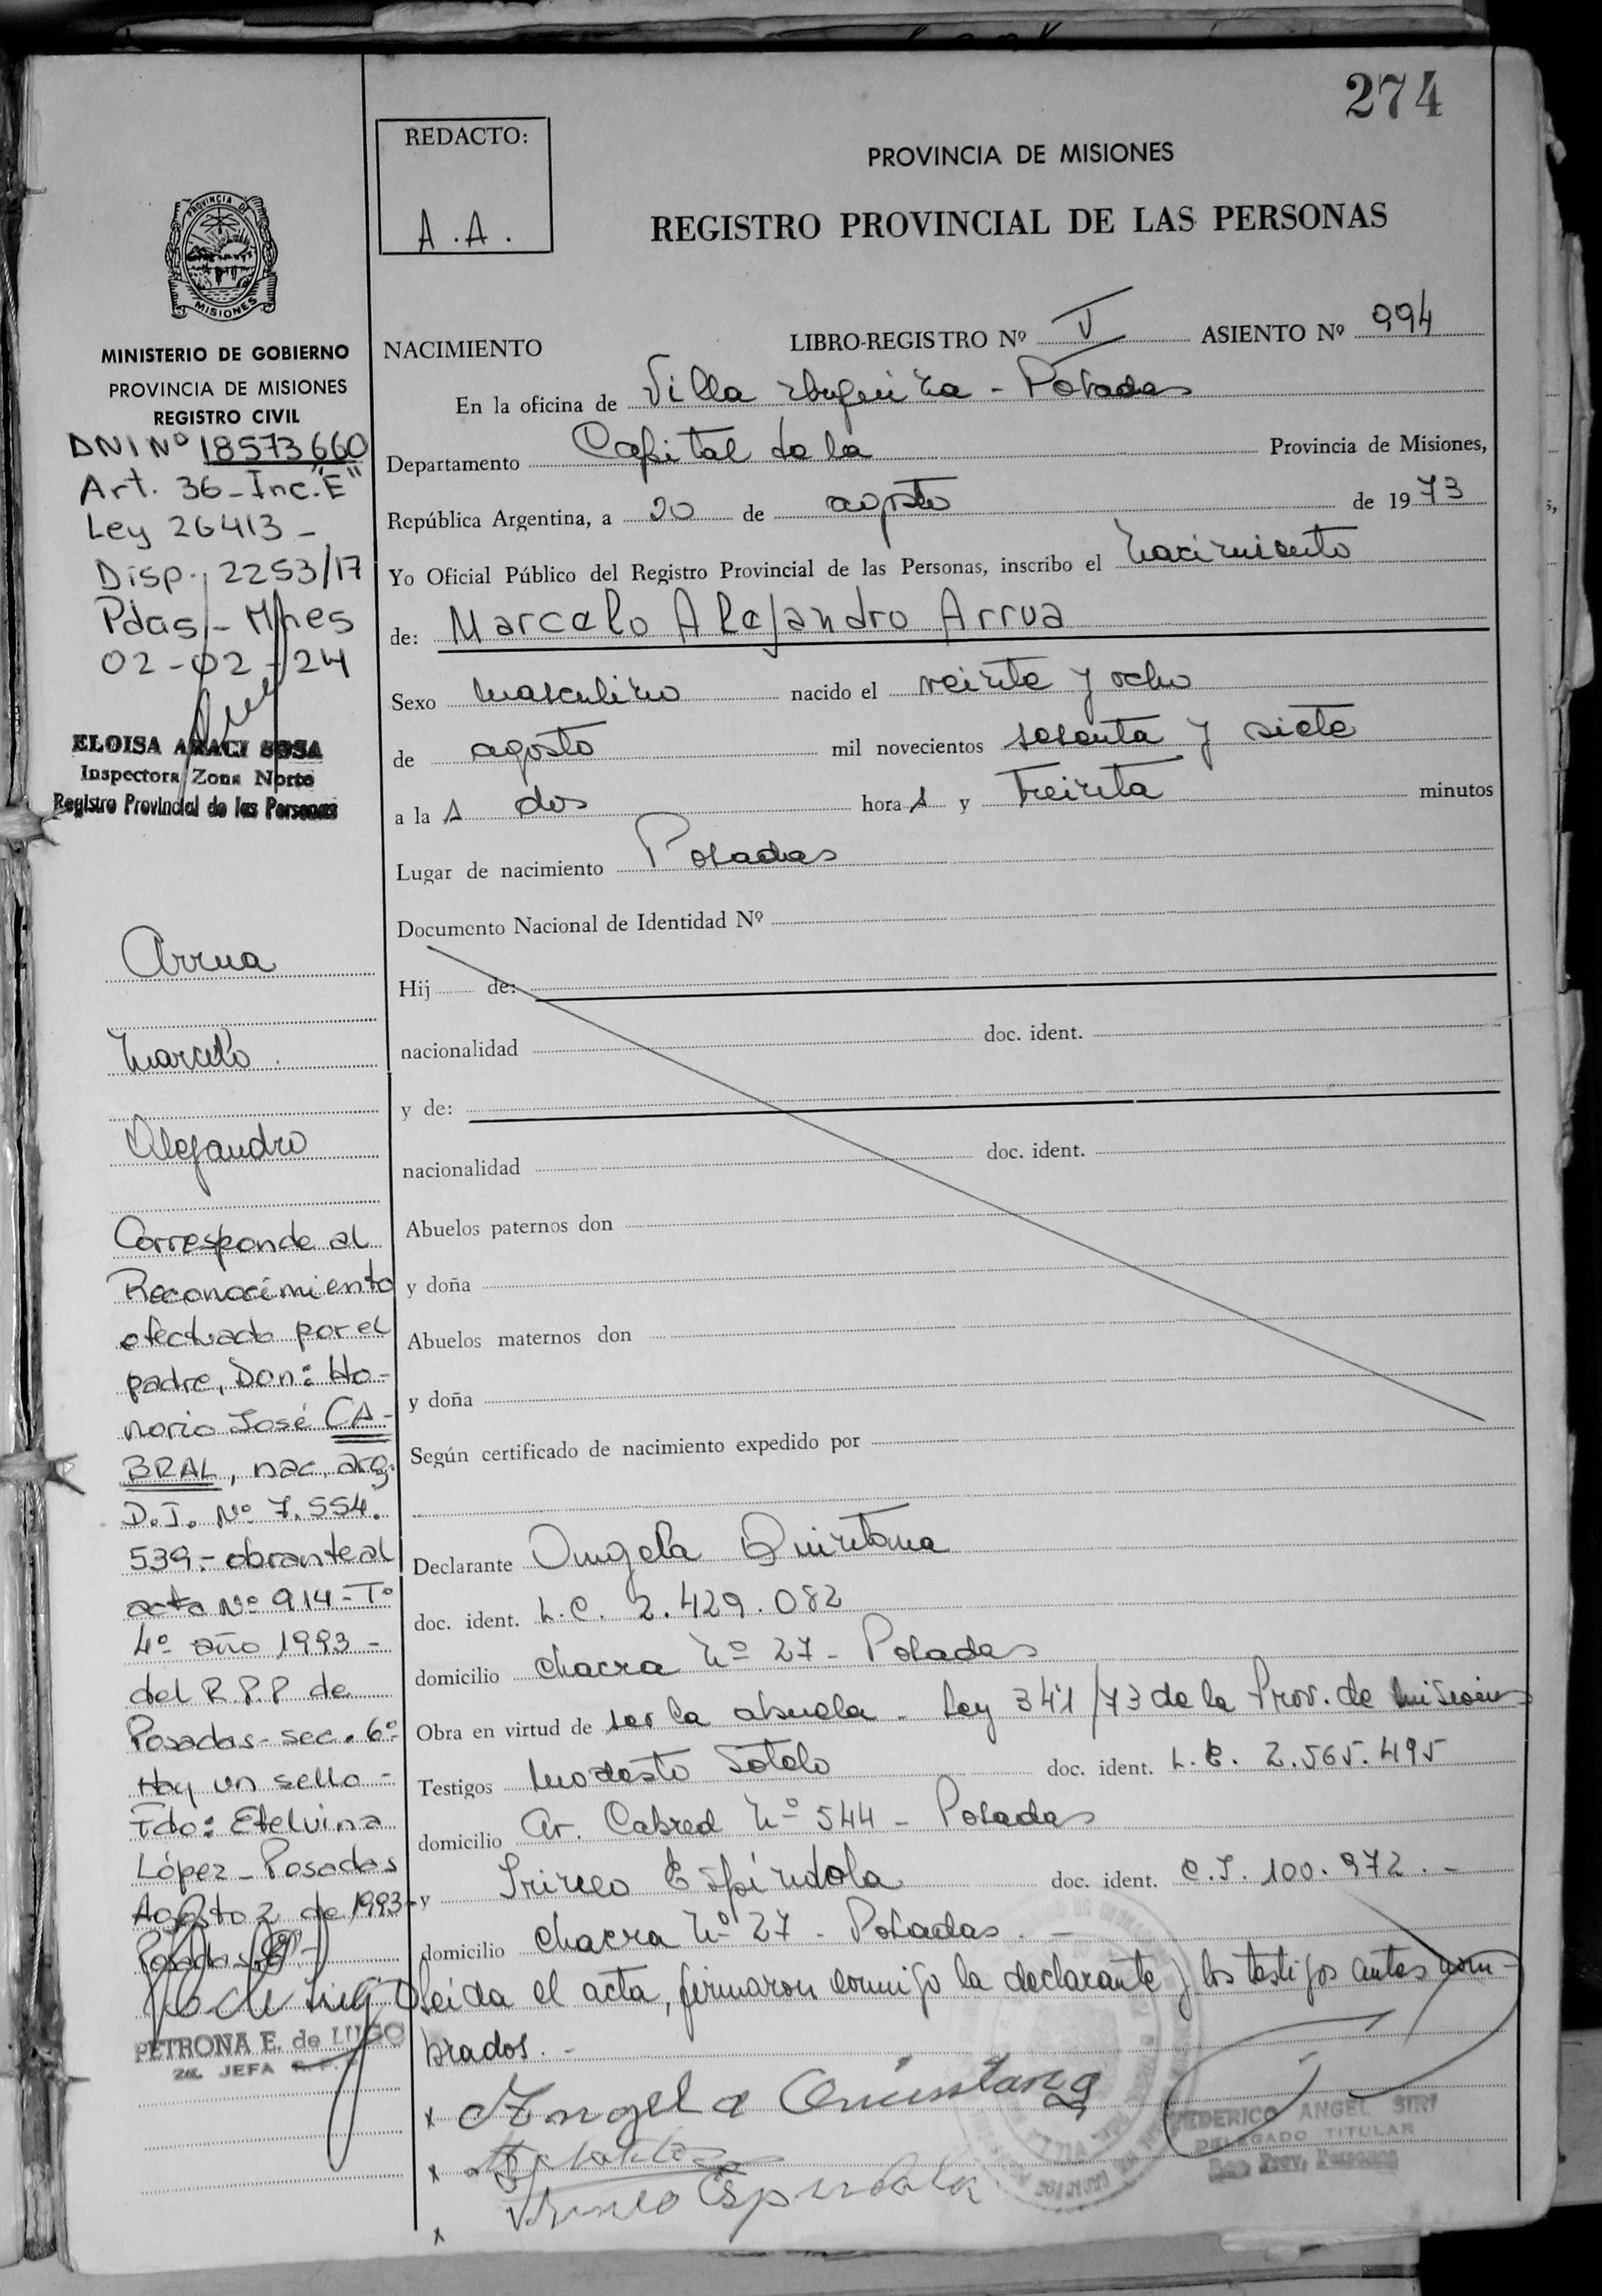 274
REDACTO:
A.A.
PROVINCIA DE MISIONES
REGISTRO PROVINCIAL DE LAS PERSONAS
PROVINCIA DE
MISIONES
MINISTERIO DE GOBIERNO
PROVINCIA DE MISIONES
REGISTRO CIVIL
DNI Nº 18573660
Art. 36-Inc. "E"
Ley 26413-
Disp. 2253/17
Pdas - Mnes
02-02-24
ELOISA ARACI SOSA
Inspectora Zona Norte
Registro Provincial de las Personas
Arrua
Marcelo
Alejandro
Corresponde al
Reconocimiento
efectuado por el
padre, Don: Ho-
norio José CA-
BRAL, nac. arg.
D.I. Nº 7.554.
539.- obrante al
acta Nº 914-Tº
4º año 1993-
del R.P.P de
Posadas-sec. 6º
Hay un sello-
Fdo: Etelvina
López-Posadas
Agosto 2 de 1993-
PETRONA E. de LUGO
2da. JEFA
NACIMIENTO LIBRO-REGISTRO Nº V ASIENTO Nº 994
En la oficina de Villa - Posadas
Departamento Capital de la Provincia de Misiones,
República Argentina, a 20 de agosto de 1973
Yo Oficial Público del Registro Provincial de las Personas, inscribo el nacimiento
de: Marcelo Alejandro Arrua
Sexo masculino nacido el veinte y ocho
de agosto mil novecientos sesenta y siete
a las dos horas y treinta minutos
Lugar de nacimiento Posadas
Documento Nacional de Identidad Nº
Hij de:
nacionalidad doc. ident.
y de:
nacionalidad doc. ident.
Abuelos paternos don
y doña
Abuelos maternos don
y doña
Según certificado de nacimiento expedido por
Declarante Angela Quintana
doc. ident. L.C. 2.429.082
domicilio chacra Nº 27 - Posadas
Obra en virtud de ser la abuela - Ley 341/73 de la Prov. de Misiones
Testigos Modesto Sotelo doc. ident. L.E. 2.565.495
domicilio Av. Cabred Nº 544 - Posadas
y Irineo Espíndola doc. ident. C.I. 100.972.-
domicilio chacra Nº 27 - Posadas.-
Leida el acta, firmaron conmigo la declarante y los testigos antes nom-
brados.-
x Angela Quintana
x
x Irineo Espindola
FEDERICO ANGEL SIRI
DELEGADO TITULAR
Reg. Prov. Personas